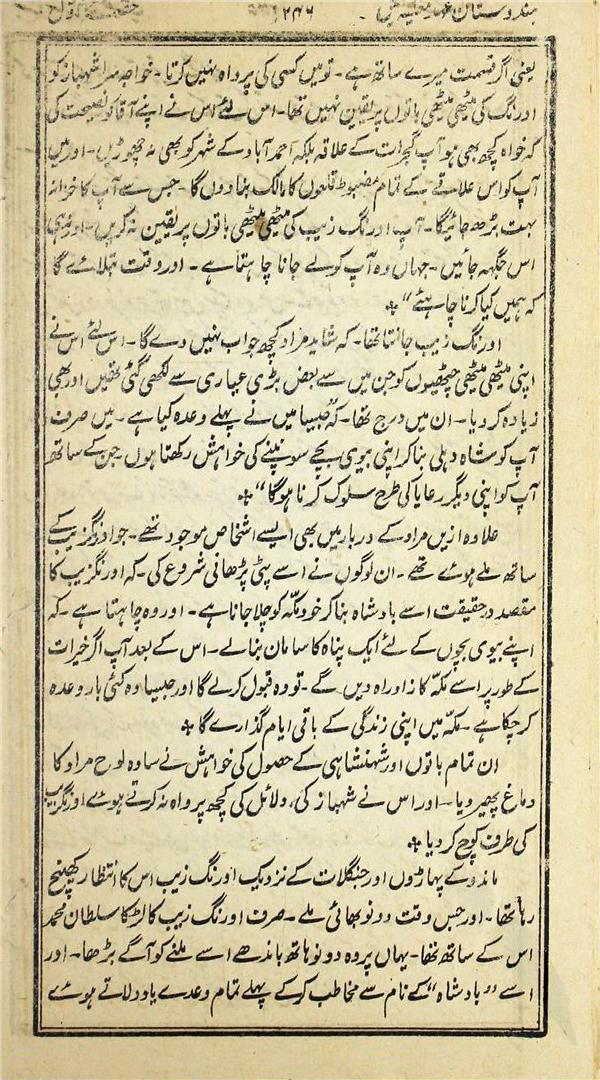 ہندوستان عہد مغلیہ میں ۲۴۶ حصہ
یعنی اگر قسمت میرے ساتھ ہے۔ تو میں کسی کی پرواہ نہیں کرتا۔ خواجہ سرا شہباز کو
اورنگ کی میٹھی میٹھی باتوں پر یقین نہیں تھا۔ اس لئے اس نے اپنے آقا کو نصیحت کی
کہ خواہ کچھ بھی ہو آپ گجرات کے علاقہ بلکہ احمد آباد کے شہر کو بھی نہ چھوڑیں۔ اور میں
آپ کو اس علاقے کے تمام مضبوط قلعوں کا مالک بنا دوں گا۔ جس سے آپ کا خزانہ
بہت بڑھ جائیگا۔ آپ اورنگ زیب کی میٹھی میٹھی باتوں پر یقین نہ کریں۔ اور نہ ہی
اس جگہہ جائیں۔ جہاں وہ آپ کو لے جانا چاہتا ہے۔ اور وقت بتلائے گا
کہ ہمیں کیا کرنا چاہئے“ ٭
اورنگ زیب جانتا تھا۔ کہ شاید مراد کچھ جواب نہیں دے گا۔ اس لئے اس نے
اپنی میٹھی میٹھی چٹھیوں کو جن میں سے بعض بڑی عیاری سے لکھی گئی تھیں اور بھی
زیادہ کر دیا۔ ان میں درج تھا۔ کہ ”جیسا میں نے پہلے وعدہ کیا ہے۔ میں صرف
آپ کو شاہ دہلی بنا کر اپنی بیوی بچے سونپنے کی خواہش رکھتا ہوں۔ جن کے ساتھ
آپ کو اپنی دیگر رعایا کی طرح سلوک کرنا ہوگا“ ٭
علاوہ ازیں مراد کے دربار میں بھی ایسے اشخاص موجود تھے۔ جو اورنگزیب کے
ساتھ ملے ہوئے تھے۔ ان لوگوں نے اسے پٹی پڑھانی شروع کی۔ کہ اورنگزیب کا
مقصد درحقیقت اسے بادشاہ بنا کر خود مکّہ کو چلا جانا ہے۔ اور وہ چاہتا ہے۔ کہ
اپنے بیوی بچوں کے لئے ایک پناہ کا سامان بنا لے۔ اس کے بعد آپ اگر خیرات
کے طور پر اسے مکّہ کا زادراہ دیں گے۔ تو وہ قبول کرلے گا اور جیسا وہ کئی بار وعدہ
کر چکا ہے۔ مکّہ میں اپنی زندگی کے باقی ایام گذارے گا ٭
ان تمام باتوں اور شہنشاہی کے حصول کی خواہش نے سادہ لوح مراد کا
دماغ پھیر دیا۔ اور اس نے شہباز کی دلائل کی کچھ پرواہ نہ کرتے ہوئے اورنگزیب
کی طرف کوچ کر دیا ٭
مانڈو کے پہاڑوں اور جنگلات کے نزدیک اورنگ زیب اس کا انتظار کھینچ
رہا تھا۔ اور جس وقت دونو بھائی ملے۔ صرف اورنگ زیب کا لڑکا سلطان محمد
اس کے ساتھ تھا۔ یہاں پر وہ دونو ہاتھ باندھے اسے ملنے کو آگے بڑھا۔ اور
اسے ”بادشاہ“ کے نام سے مخاطب کرکے پہلے تمام وعدے یاد دلاتے ہوئے